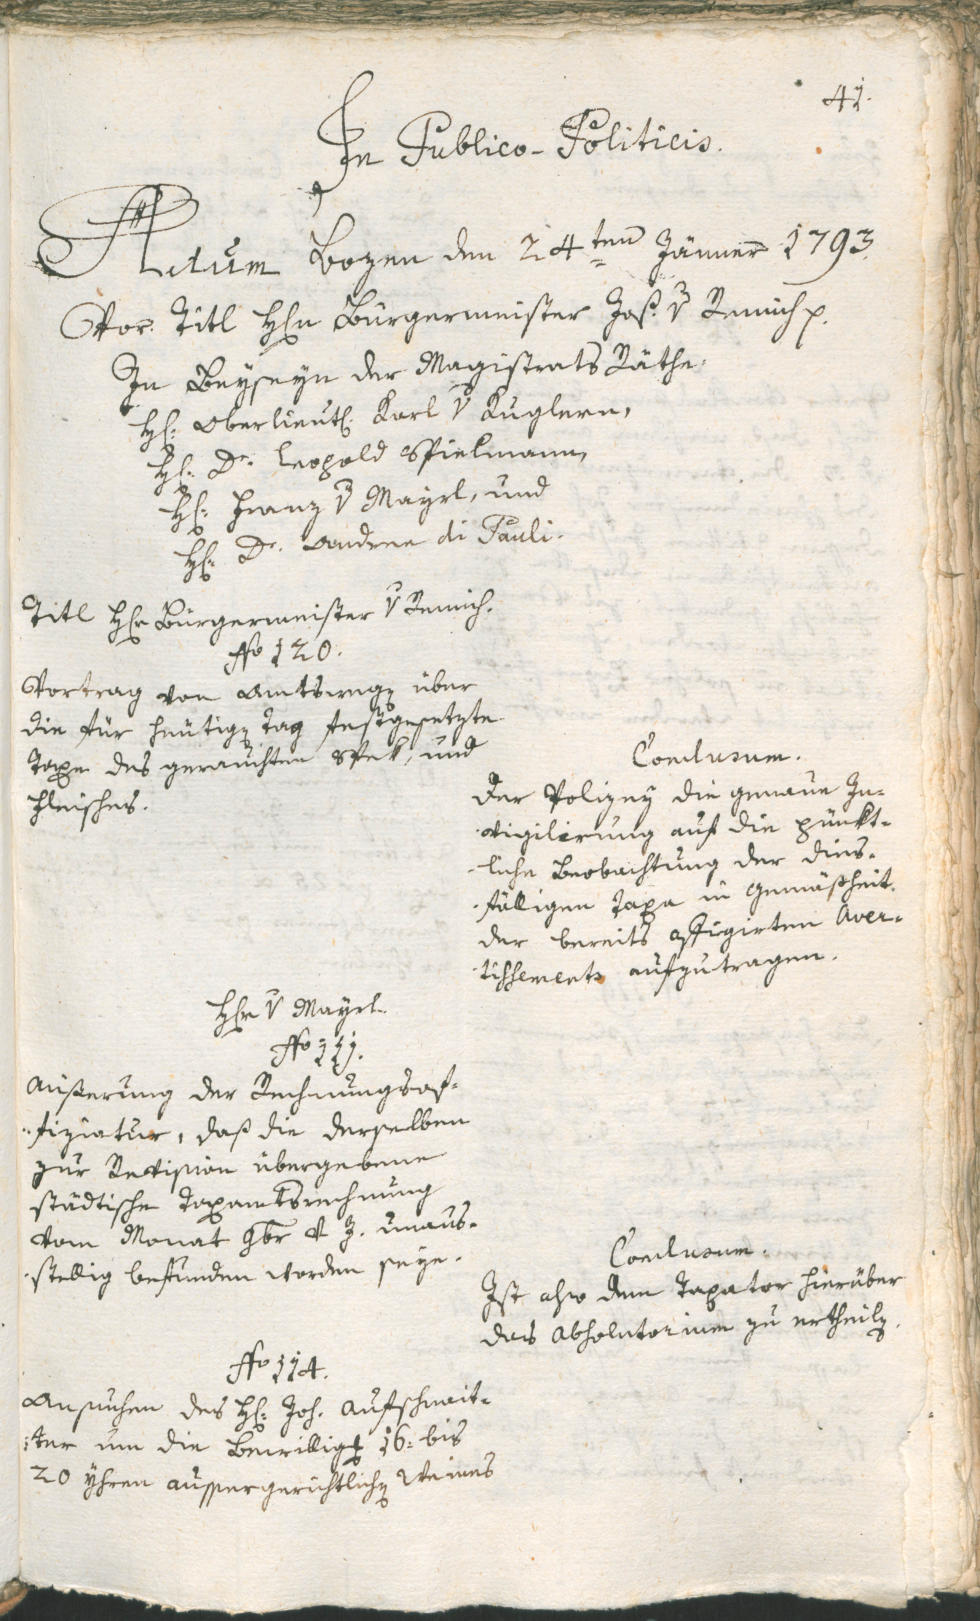 41.
In Publico-Politicis.
Actum Bozen den 24ten Jänner 1793
Vor Titl Hhn Bürgermeister Jos. v Remich p.
In Beyseyn der Magistrats Räthe.
Hl: Oberlieut: Karl v Kuglern,
Hl: Dr. Leopold Spielmann,
Hl: Franz v Mayrl, und
Hl: Dr. Andree di Pauli.
Titl Hhr Bürgermeister v Remich.
No 120.
Vortrag von Amtsweg über
die für heutig Tag festgesetzte
Taxe des gerauchten Spek, und
Fleisches.
Conclusum.
Der Polizey die genaue In-
vigilirung auf die pünkt-
liche Beobachtung der dies-
fälligen Taxa in Gemäßheit
der bereits affigirten Aver-
tissements aufzutragen.
Hhr v Mayrl.
No 111.
Außerung der Rechnungsof-
fiziatur, daß die derselben
zur Revision übergebene
städtische Taxamtsrechnung
vom Monat 9br v. J. unaus-
stellig befunden worden seye.
Conclusum.
Ist also dem Taxator hierüber
das Absolutorium zu ertheiln.
No 114.
Ansuchen des Hl: Joh. Aufschnait-
ter um die Bewilligg 16= bis
20 Yhren aussergerichtlich Weines